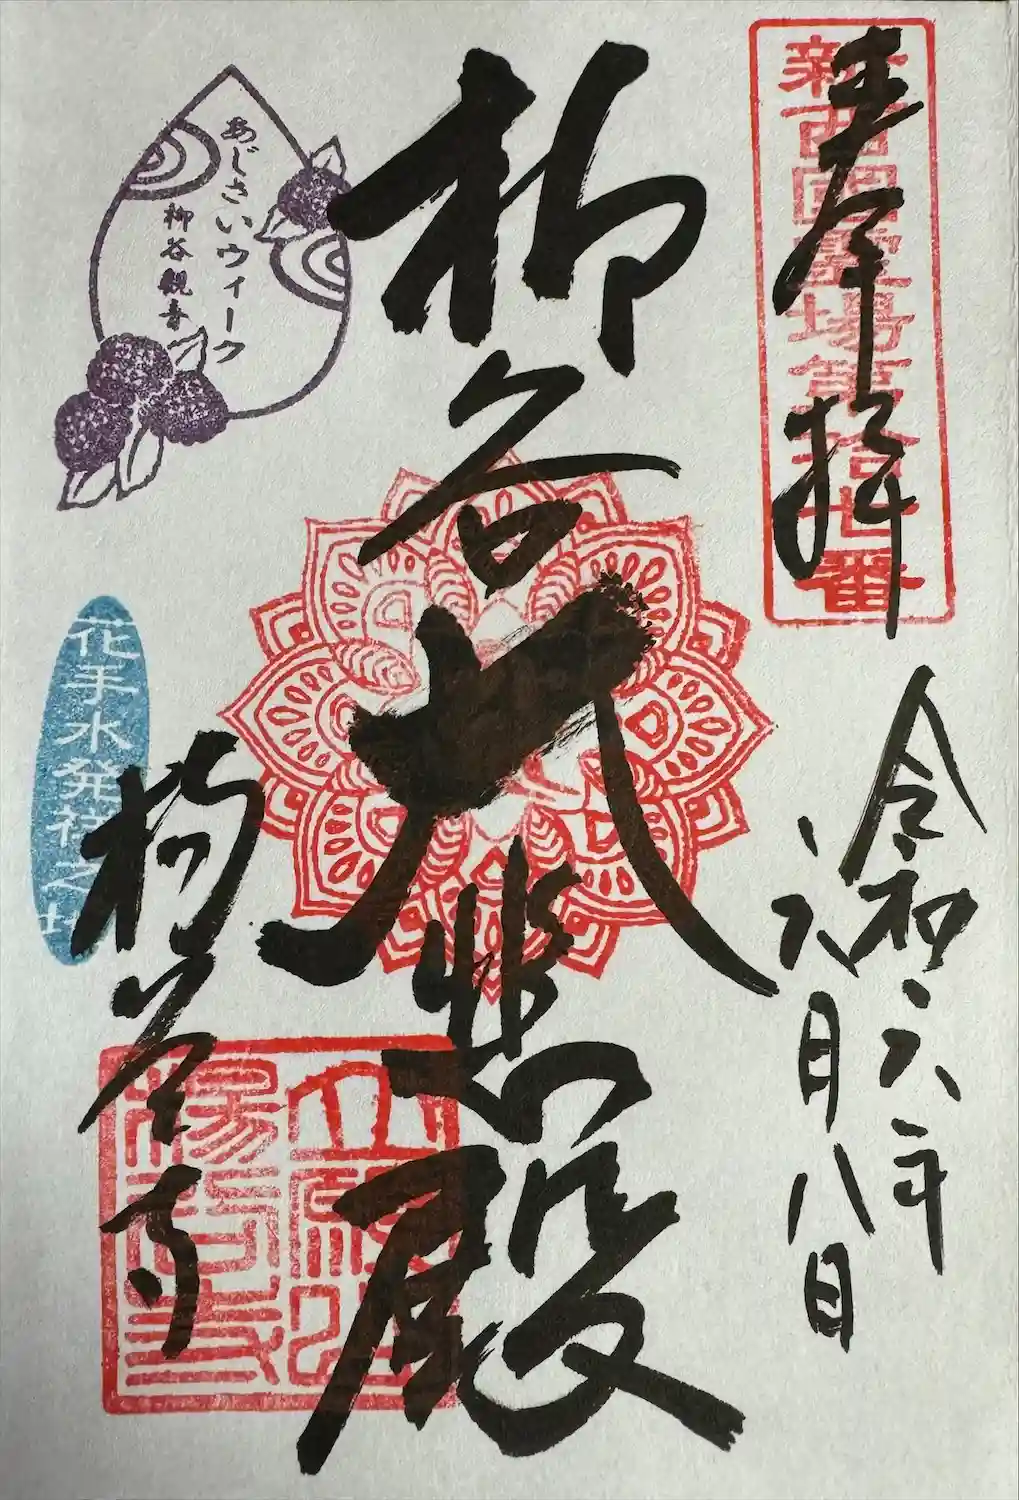 奉拝
新西國霊場第拾七番
令和六年
六月八日
柳谷
大悲殿
楊谷寺
あじさいウィーク
柳谷観音
花手水発祥之地